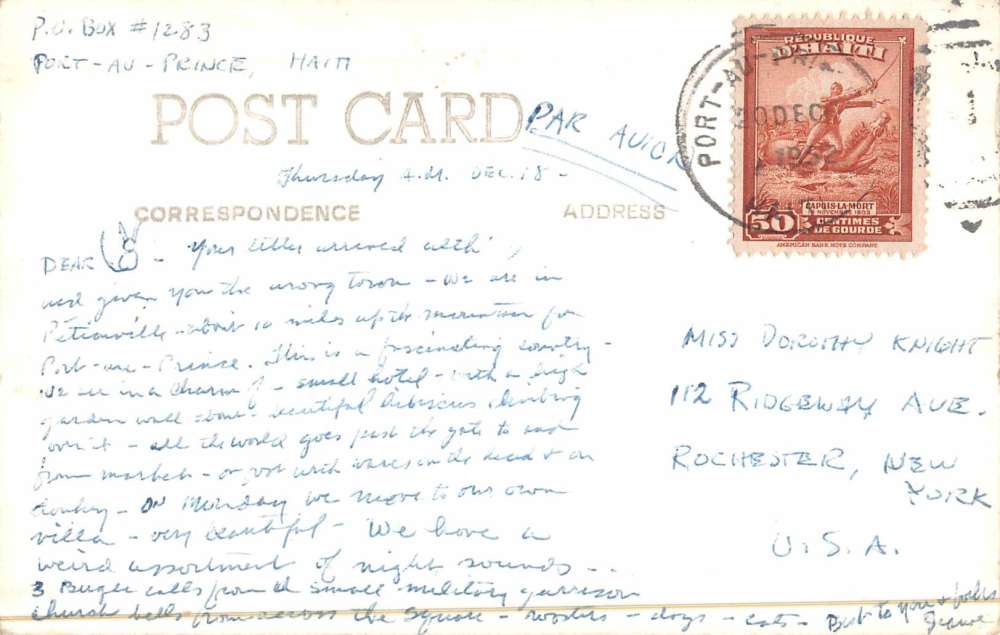 P.O. BOX #1283
PORT-AU-PRINCE, HAITI
POST CARD
PAR AVION
Thursday A.M. DEC. 18 -
CORRESPONDENCE
ADDRESS
DEAR - Your letter arrived
given you the wrong town - We are in
Petionville - about 10 miles up the mountain
Port-au-Prince. This is a fascinating country -
We are in a charming - small hotel - with a high
garden wall beautiful hibiscus climbing
over it - all the world goes past the gate to and
from market - or just with wares on the head & on
donkey - ON Monday we move to our own
villa - very beautiful - We have a
weird assortment of night sounds ...
3 Bugle calls from small military garrison
church bells from across the square - roosters - dogs - cats - Best to you &
PORT-AU-PRINCE
20 DEC
RÉPUBLIQUE
D'HAITI
CAPOIS-LA-MORT
18 NOVEMBRE 1803
50 CENTIMES
DE GOURDE
AMERICAN BANK NOTE COMPANY
MISS DOROTHY KNIGHT
112 RIDGEWAY AVE.
ROCHESTER, NEW
YORK
U.S.A.